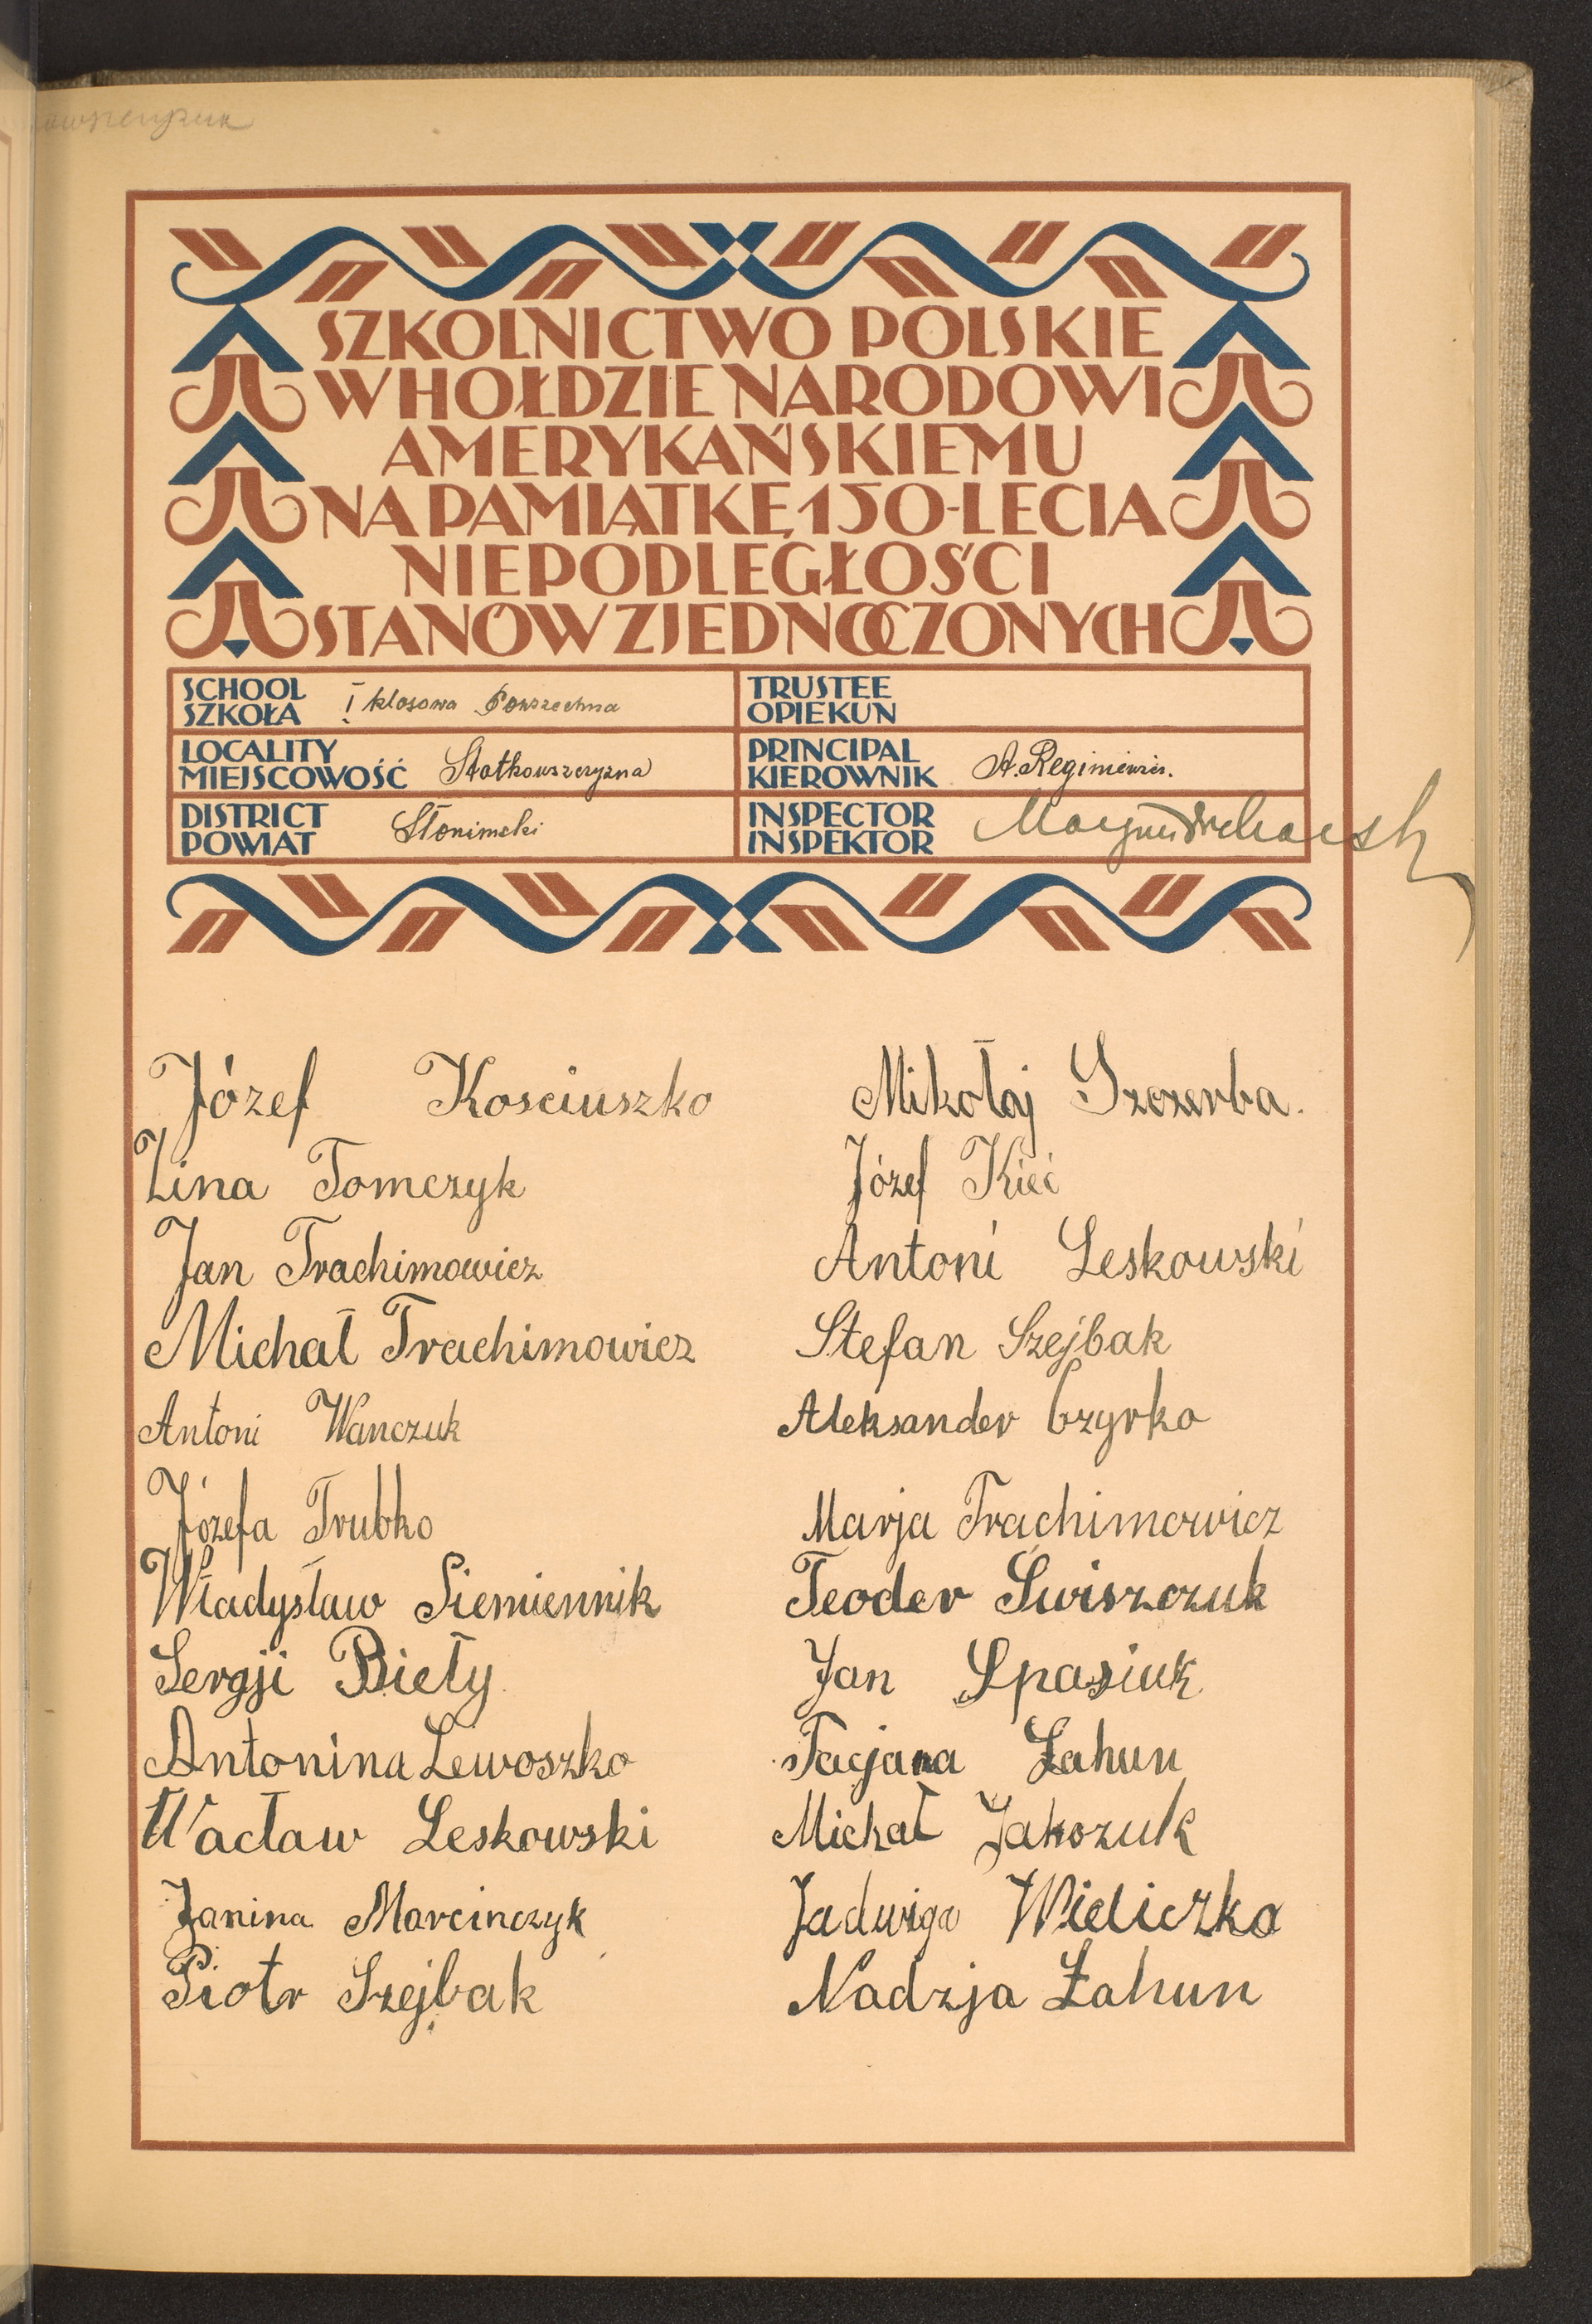 SZKOLNICTWO POLSKIE
W HOŁDZIE NARODOWI
AMERYKAŃSKIEMU
NA PAMIĄTKĘ 150-LECIA
NIEPODLEGŁOŚCI
STANÓW ZJEDNOCZONYCH
SCHOOL
SZKOŁA
I klasowa Powszechna
LOCALITY
MIEJSCOWOŚĆ
Statkowszczyzna
DISTRICT
POWIAT
Słonimski
TRUSTEE
OPIEKUN
PRINCIPAL
KIEROWNIK
A. Reginiewicz.
INSPECTOR
INSPEKTOR
Józef Kosciuszko
Lina Tomczyk
Jan Trachimowicz
Michał Trachimowicz
Antoni Wanczuk
Józefa Trubko
Władysław Siemiennik
Sergji Bieły
Antonina Lewoszko
Wacław Leskowski
Janina Marcinczyk
Piotr Szejbak
Mikołaj Szczerba.
Józef Kieć
Antoni Leskowski
Stefan Szejbak
Aleksander Czyrko
Marja Trachimowicz
Teoder Swiszczuk
Jan Spasiuk
Tacjana Żahun
Michał Jakozuk
Jadwiga Wieliczko
Nadzja Żahun